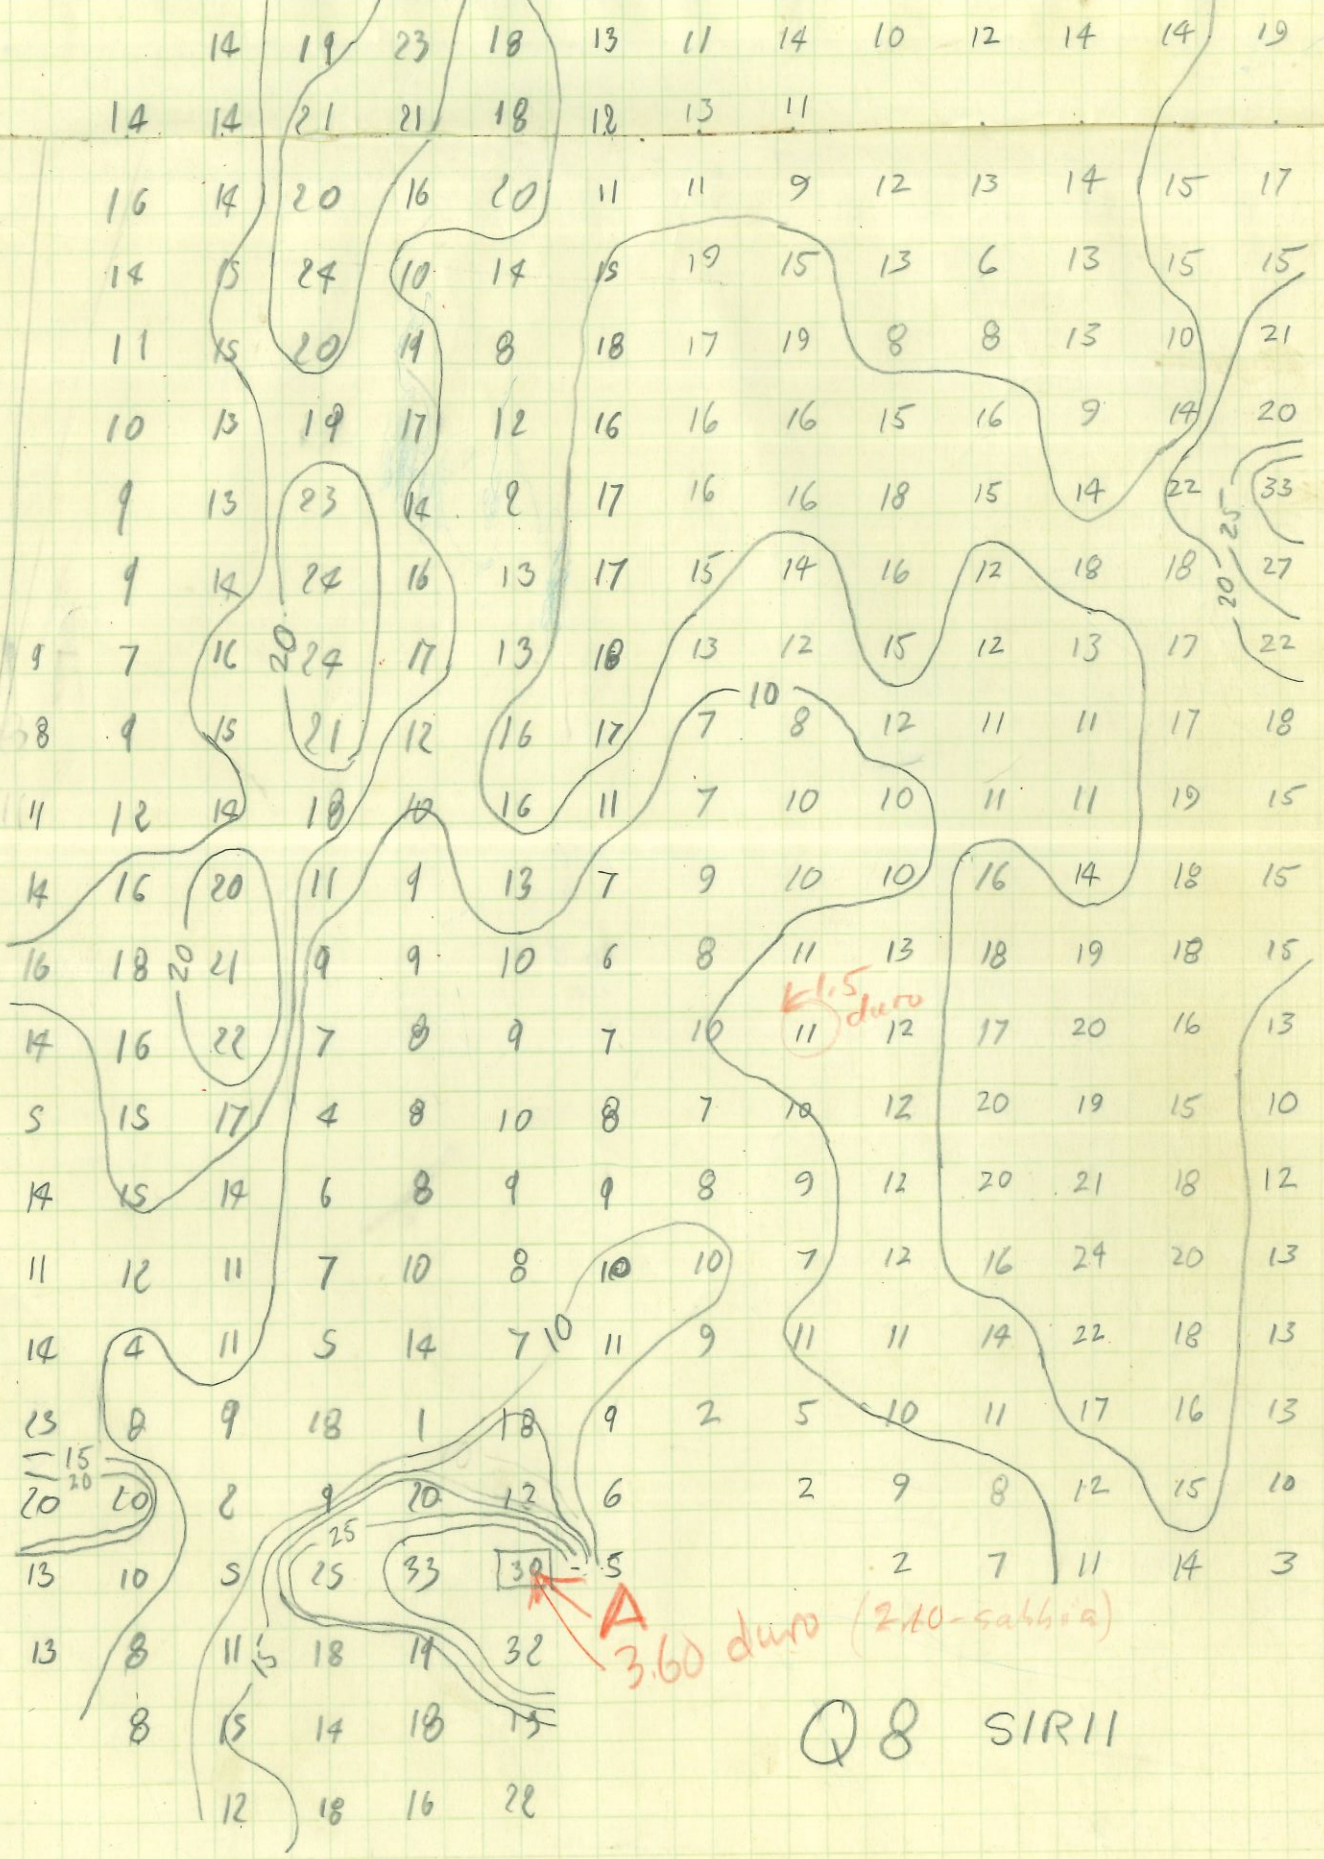 14 19 23 18 13 11 14 10 12 14 14 19
14 14 21 21 18 12 13 11
16 14 20 16 20 11 11 9 12 13 14 15 17
14 15 24 10 14 15 19 15 13 6 13 15 15
11 15 20 19 8 18 17 19 8 8 13 10 21
10 13 19 17 12 16 16 16 15 16 9 14 20
9 13 23 14 2 17 16 16 18 15 14 22 33
25
9 14 24 16 13 17 15 14 16 12 18 18 27
20
9 7 16 20 24 17 13 18 13 12 15 12 13 17 22
10
8 9 15 21 12 16 17 7 8 12 11 11 17 18
11 12 14 18 10 16 11 7 10 10 11 11 19 15
14 16 20 11 9 13 7 9 10 10 16 14 18 15
16 18 20 21 9 9 10 6 8 11 13 18 19 18 15
1.5 duro
14 16 22 7 8 9 7 10 11 12 17 20 16 13
5 15 17 4 8 10 8 7 10 12 20 19 15 10
14 15 14 6 8 9 9 8 9 12 20 21 18 12
11 12 11 7 10 8 10 10 7 12 16 24 20 13
14 4 11 5 14 7 10 11 9 11 11 14 22 18 13
23 8 9 18 1 18 9 2 5 10 11 17 16 13
15
20
20 20 2 9 20 12 6 2 9 8 12 15 10
25
13 10 5 25 33 30 - 5 2 7 11 14 3
A
3.60 duro (2.10-sabbia)
13 8 11 15 18 19 32
8 15 14 18 19
Q8 SIR11
12 18 16 22